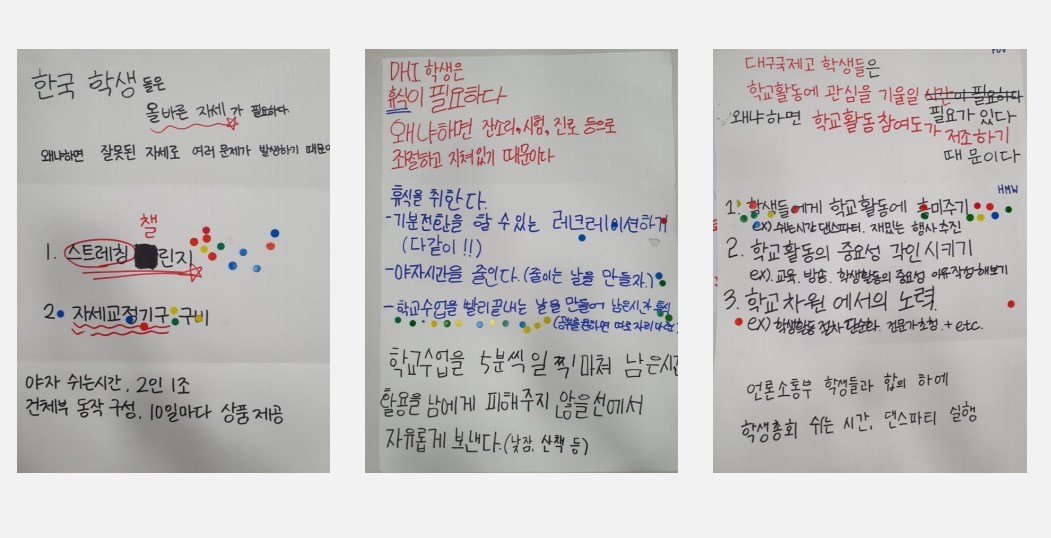 한국 학생들은
올바른 자세가 필요하다
왜냐하면 잘못된 자세로 여러 문제가 발생하기 때문이
챌
1. 스트레칭 린지
2. 자세교정기구 구비
야자 쉬는시간, 2인 1조
건체부 동작 구성, 10일마다 상품 제공
DHI 학생은
휴식이 필요하다
왜냐하면 잔소리, 시험, 진로 등으로
좌절하고 지쳐있기 때문이다
휴식을 취한다.
-기분전환을 할 수 있는 레크레이션하기
(다같이!!)
-야자시간을 줄인다. (줄이는 날을 만들자.)
-학교수업을 빨리끝내는 날을 만들어 남은시간 휴식
(공부를 원하면 따로 자리 마련)
학교수업을 5분씩 일찍 마쳐 남은시간
활용을 남에게 피해주지 않을 선에서
자유롭게 보낸다. (낮잠, 산책 등)
POV
대구국제고 학생들은
학교활동에 관심을 기울일 시간이 필요하다
필요가 있다
왜냐하면 학교활동 참여도가 저조하기
때문이다
HMW
1. 학생들에게 학교활동에 흥미주기
ex) 쉬는시간 댄스파티. 재밌는 행사 추진
2. 학교활동의 중요성 각인시키기
ex). 교육, 방송. 학생활동의 중요성 이유 작성해보기
3. 학교차원에서의 노력.
ex) 학생활동 절차 단순화. 전문가 초청. + etc.
언론소통부 학생들과 합의 하에
학생총회 쉬는 시간, 댄스파티 실행